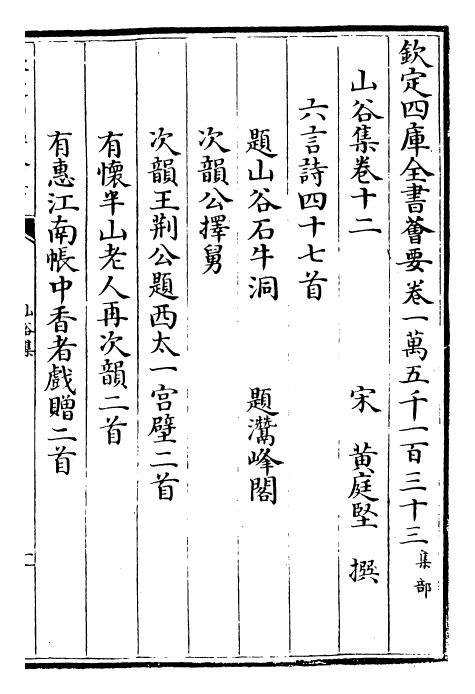 欽定四庫全書薈要卷一萬五千一百三十三 集部
山谷集卷十二 宋 黄庭堅 撰
六言詩四十七首
題山谷石牛洞 題灊峰閣
次韻公擇舅
次韻王荆公題西太一宫壁二首
有懷半山老人再次韻二首
有惠江南帳中香者戲贈二首
山谷集